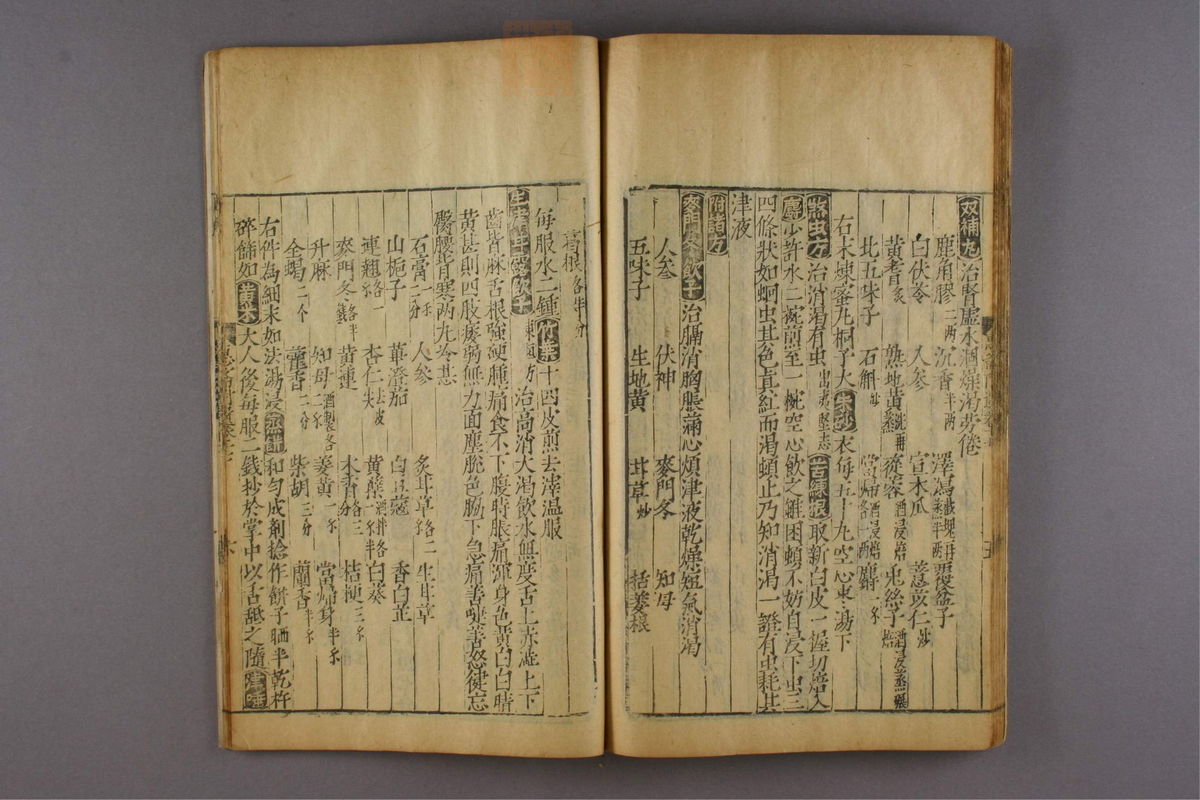 双補丸 治腎虛水涸燥渴勞倦
鹿角膠二兩 沉香半兩 澤瀉 覆盆子
白伏苓 人參 宣木瓜 薏苡仁炒
黄耆炙 熟地黄 蓯蓉酒浸焙 兔絲子酒浸蒸碾焙
北五味子 石斛炒 當歸酒浸焙各一兩 麝一錢
右末煉蜜丸桐子大朱砂衣每五十丸空心棗湯下
煞虫方 治消渴有虫出夷堅志 苦練根取新白皮一握切焙入
麝少許水二椀煎至一椀空心飲之雖困頓不妨自浸下虫三
四條狀如蛔虫其色真紅而渴頓止乃知消渴一證有虫耗其
津夜
附諸方
麥門冬飲子 治膈消胸脹滿心煩津液乾燥短氣消渴
人參 伏神 麥門冬 知母
五味子 生地黄 甘草炒 括蔞根
葛根各半分
每服水二鍾竹葉十四皮煎去滓温服
生津甘露飲子 東垣方治高消大渴飲水無度舌上赤澁上下
齒皆麻舌根強硬腫痛食不下腹時脹痛渾身色黄白白睛
黄甚則四肢痿弱無力面塵脫色脇下急痛善嚏善怒健忘
臀腰背寒兩丸冷甚
石膏 人參 炙甘草各二 生甘草
山梔子 蓽澄茄 白豆蔻 香白芷
連翹各一 杏仁去皮尖 黄蘗 白葵
麥門冬 黄連 木香各三 桔梗三
升麻 知母酒製各二 姜黄一 當歸身半
全蝎二个 藿香二分 柴胡三分 蘭香半
右件為細末如法湯浸 和勻成劑捻作餅子晒半乾杵
碎篩如黄米大人後每服二錢抄於掌中以舌䑛之隨津唾